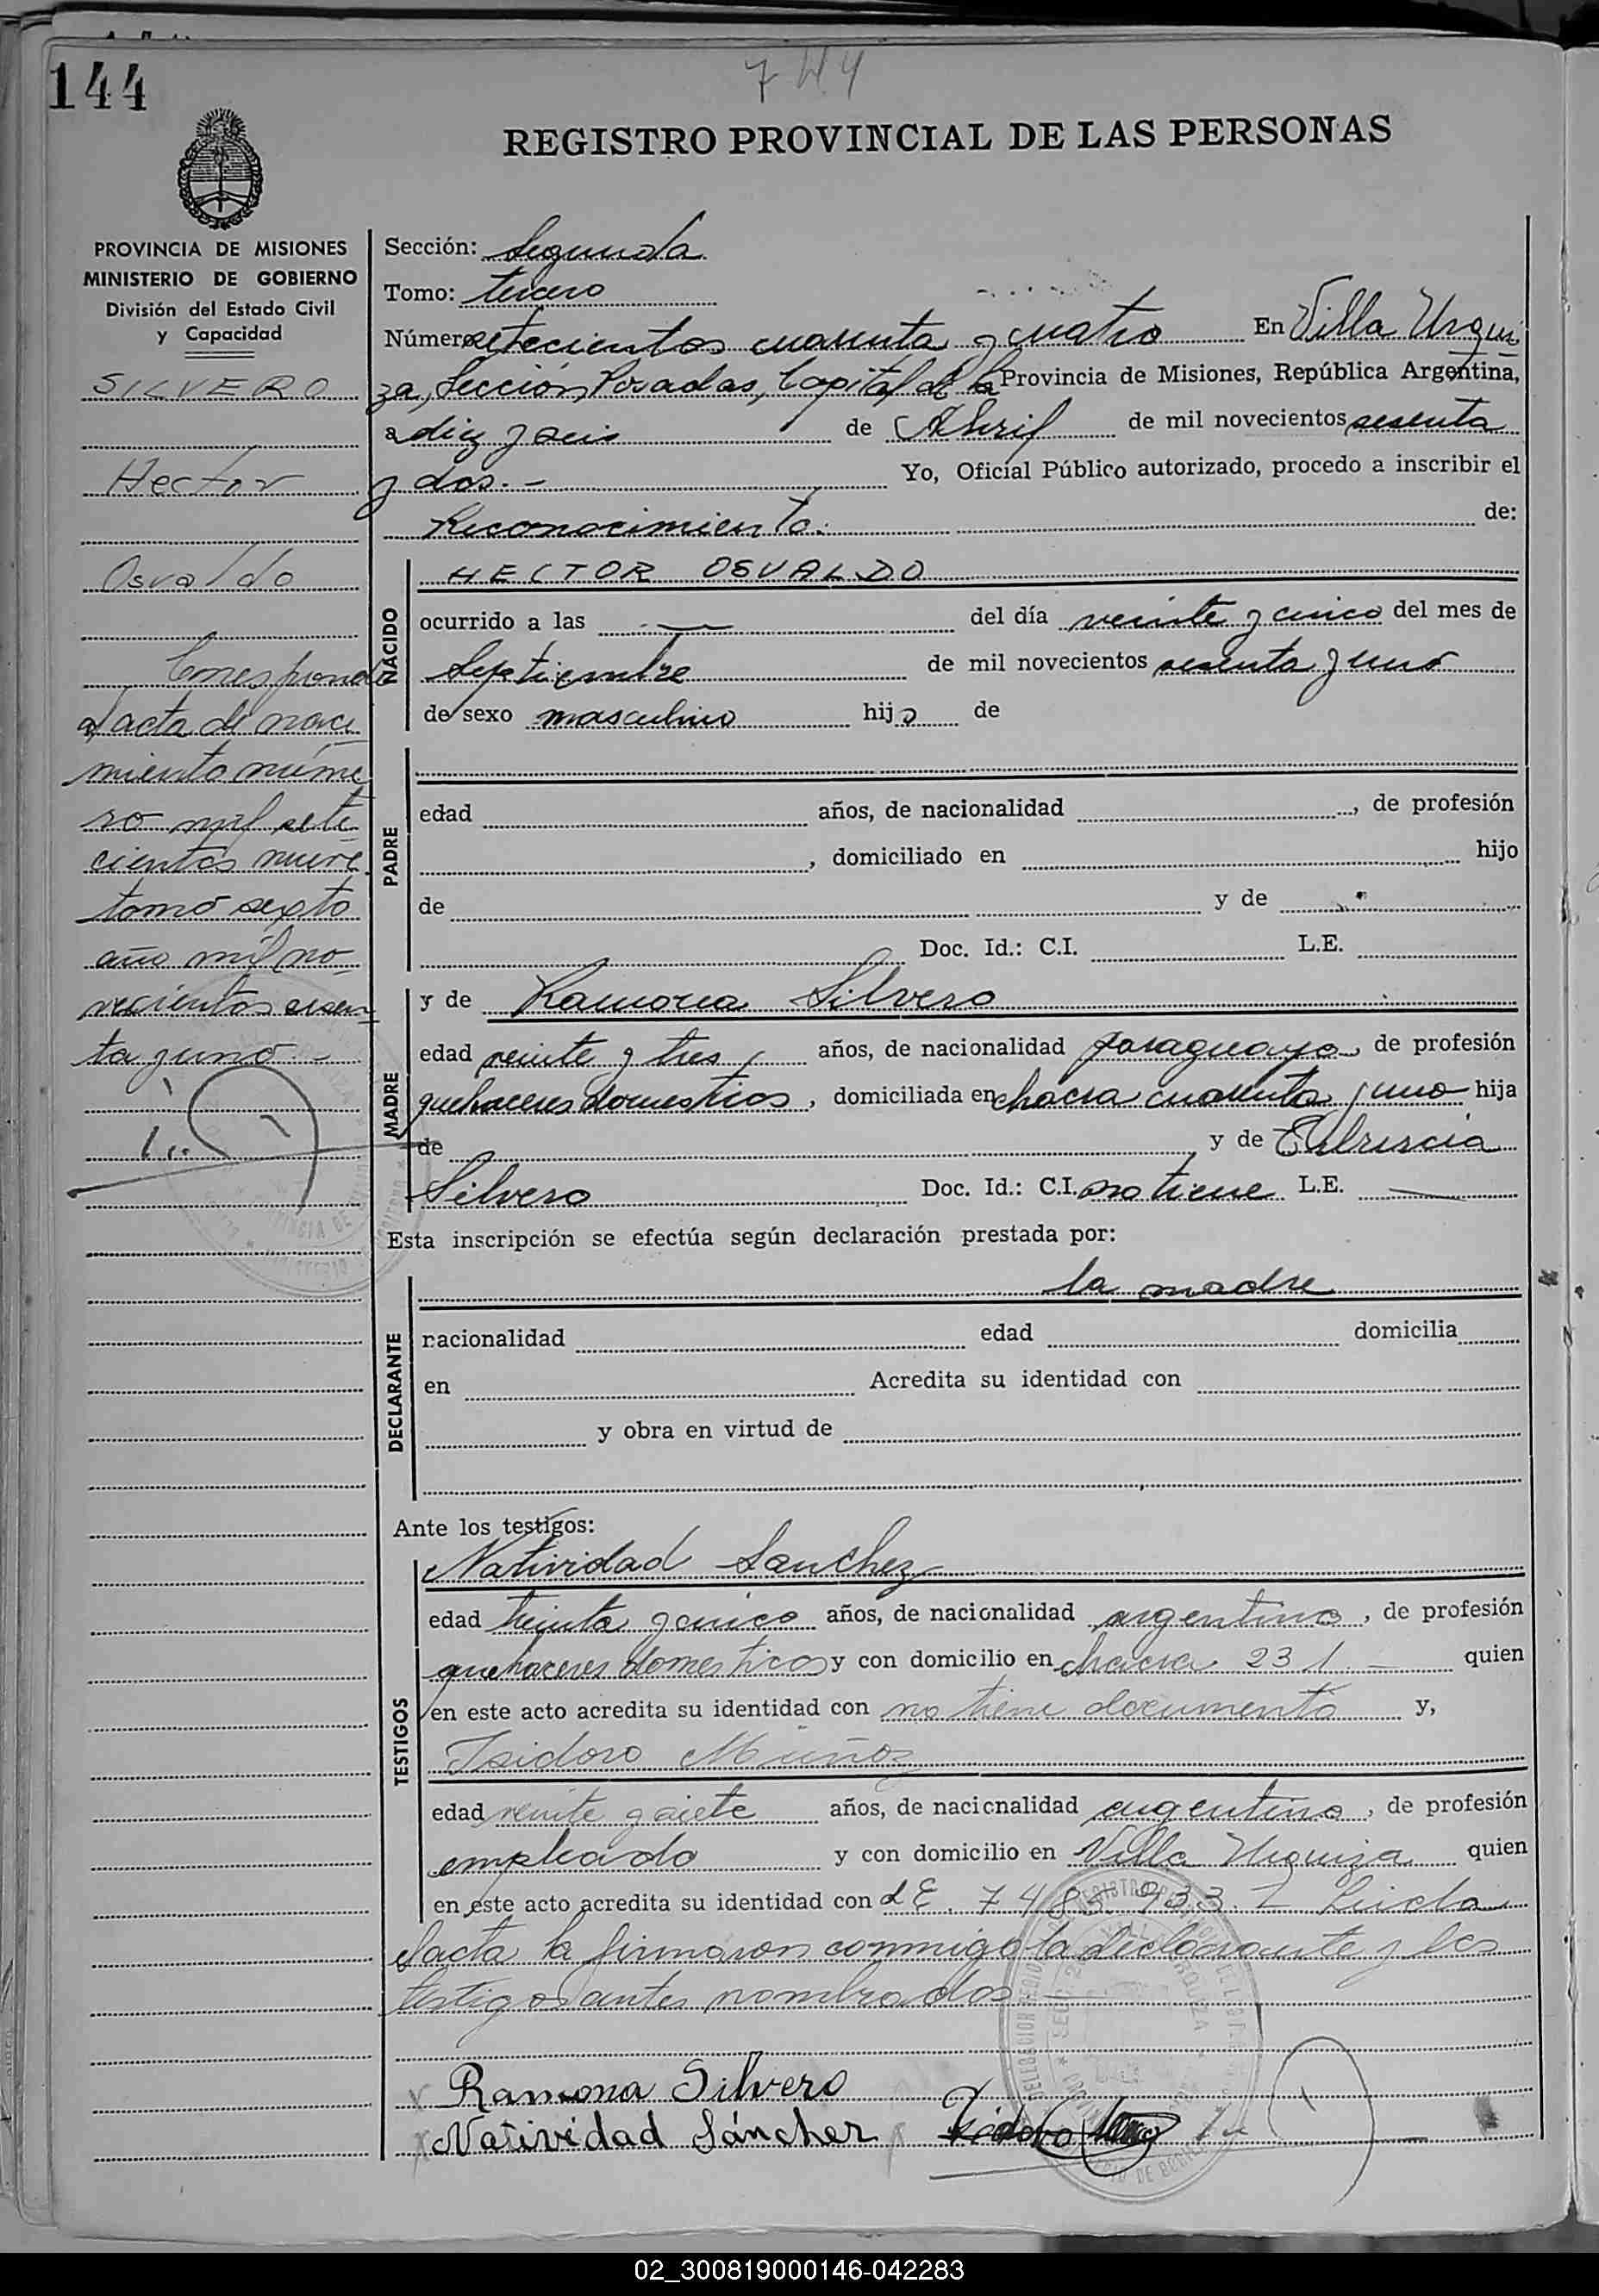 144
744
REGISTRO PROVINCIAL DE LAS PERSONAS
PROVINCIA DE MISIONES
MINISTERIO DE GOBIERNO
División del Estado Civil
y Capacidad
SILVERO
Hector
Osvaldo
Corresponde
al acta de naci
miento núme
ro mil sete
cientos nueve
tomo sexto
año mil no
vecientos sesen
ta y uno -
Sección: Segunda
Tomo: tercero
Número setecientos cuarenta y cuatro En Villa Urqui
za, Sección Posadas, Capital de la Provincia de Misiones, República Argentina,
a diez y seis de Abril de mil novecientos sesenta
y dos.- Yo, Oficial Público autorizado, procedo a inscribir el
Reconocimiento. de:
NACIDO
HECTOR OSVALDO
ocurrido a las — del día veinte y cinco del mes de
Septiembre de mil novecientos sesenta y uno
de sexo masculino hijo de
PADRE
edad años, de nacionalidad , de profesión
, domiciliado en hijo
de y de
Doc. Id.: C.I. L.E.
MADRE
y de Ramona Silvero
edad veinte y tres años, de nacionalidad paraguaya, de profesión
quehaceres domesticos, domiciliada en chacra cuarenta y uno hija
de y de
Silvero Doc. Id.: C.I. no tiene L.E. —
Esta inscripción se efectúa según declaración prestada por:
la madre
DECLARANTE
nacionalidad edad domicilia
en Acredita su identidad con
y obra en virtud de
Ante los testigos:
TESTIGOS
Natividad Sanchez
edad treinta y cinco años, de nacionalidad argentina, de profesión
quehaceres domesticos y con domicilio en chacra 231.- quien
en este acto acredita su identidad con no tiene documento y,
Isidoro Muñoz
edad veinte y siete años, de nacionalidad argentino, de profesión
empleado y con domicilio en Villa Urquiza quien
en este acto acredita su identidad con L E. 7.483.933.- Leida
el acta la firmaron conmigo la declarante y los
testigos antes nombrados
Ramona Silvero
Natividad Sánchez Isidoro
02_300819000146-042283